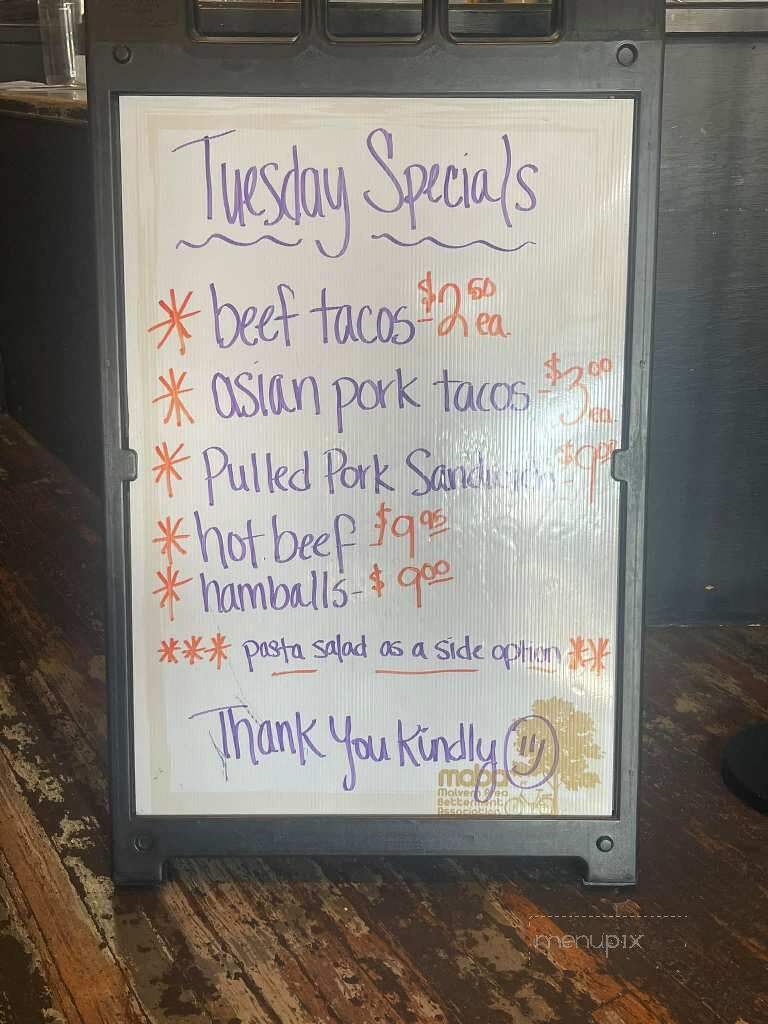 Tuesday Specials
* beef tacos - $2.50 ea.
* asian pork tacos - $3.00 ea.
* Pulled Pork Sandwich - $9.00
* hot beef $9.95
* hamballs - $9.00
*** pasta salad as a side option **
Thank you kindly
mapa
Malvern Area
Betterment
Association
menupix